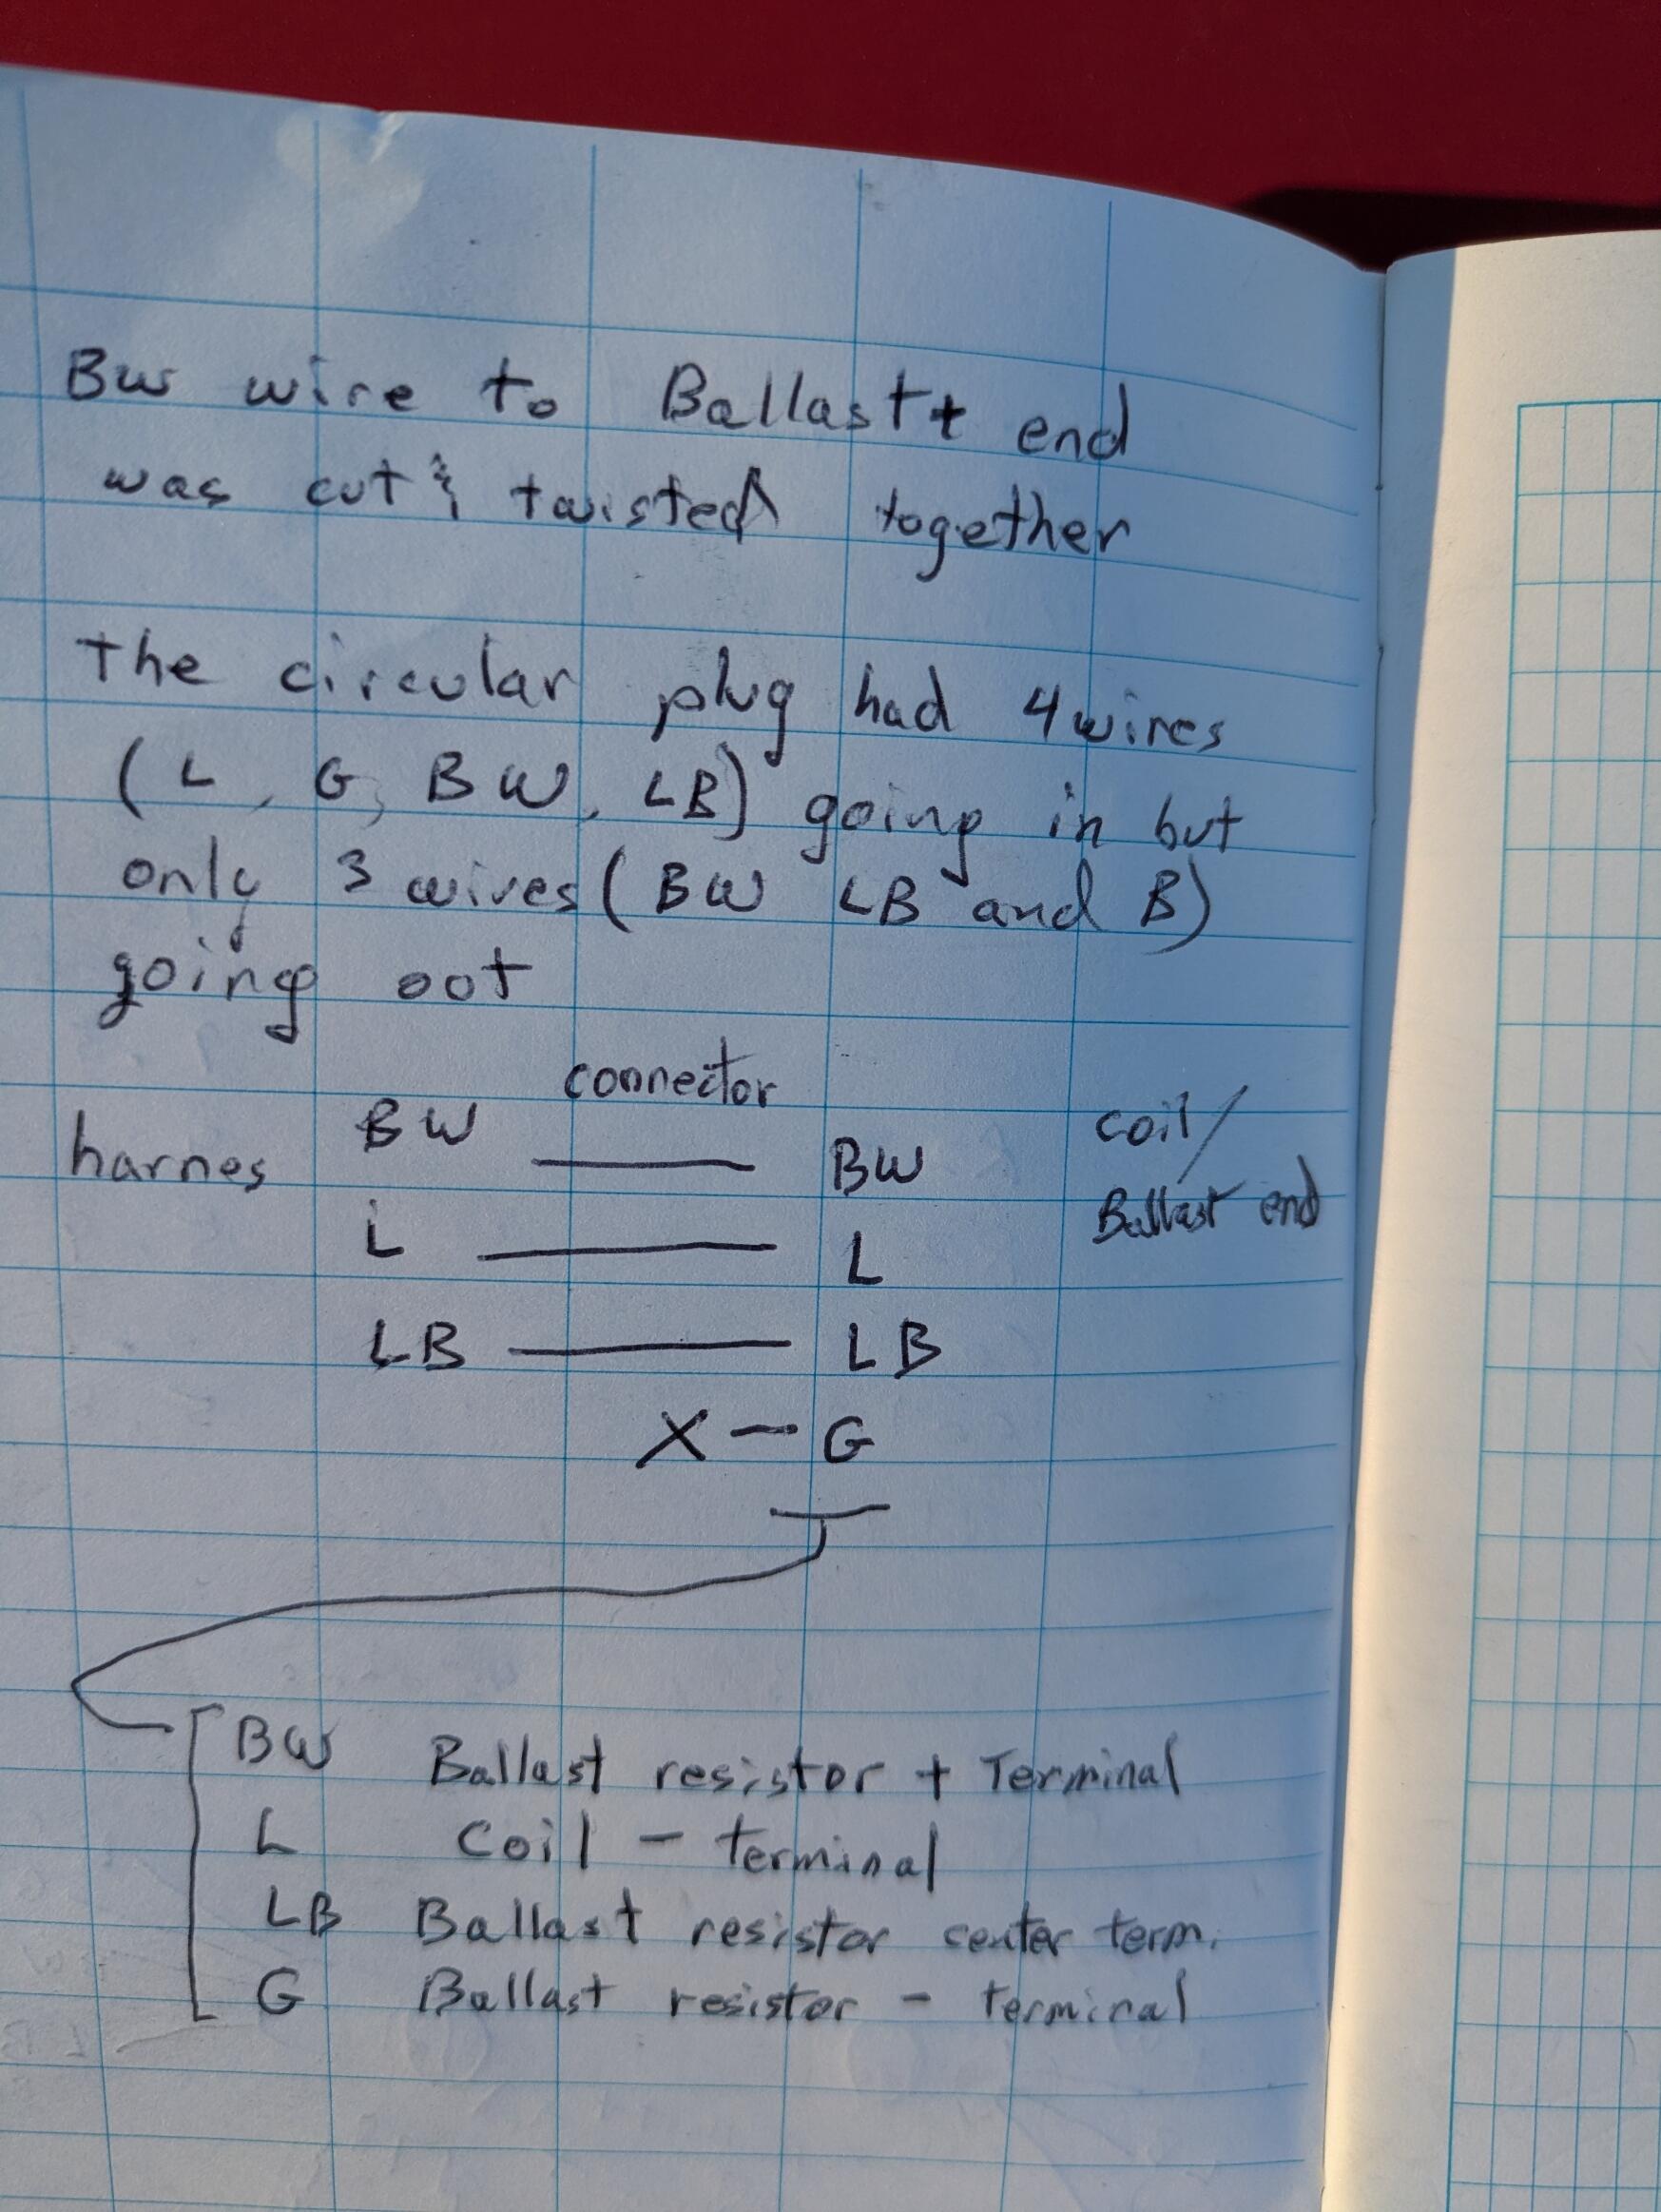 BW wire to Ballast+ end
was cut & twisted together
The circular plug had 4 wires
(L, G, BW, LB) going in but
only 3 wires (BW LB and B)
going oot
connector
harnes BW — BW coil/
Ballast end
L — L
LB — LB
X — G
BW Ballast resistor + Terminal
L Coil - terminal
LB Ballast resistor center term.
G Ballast resistor - terminal